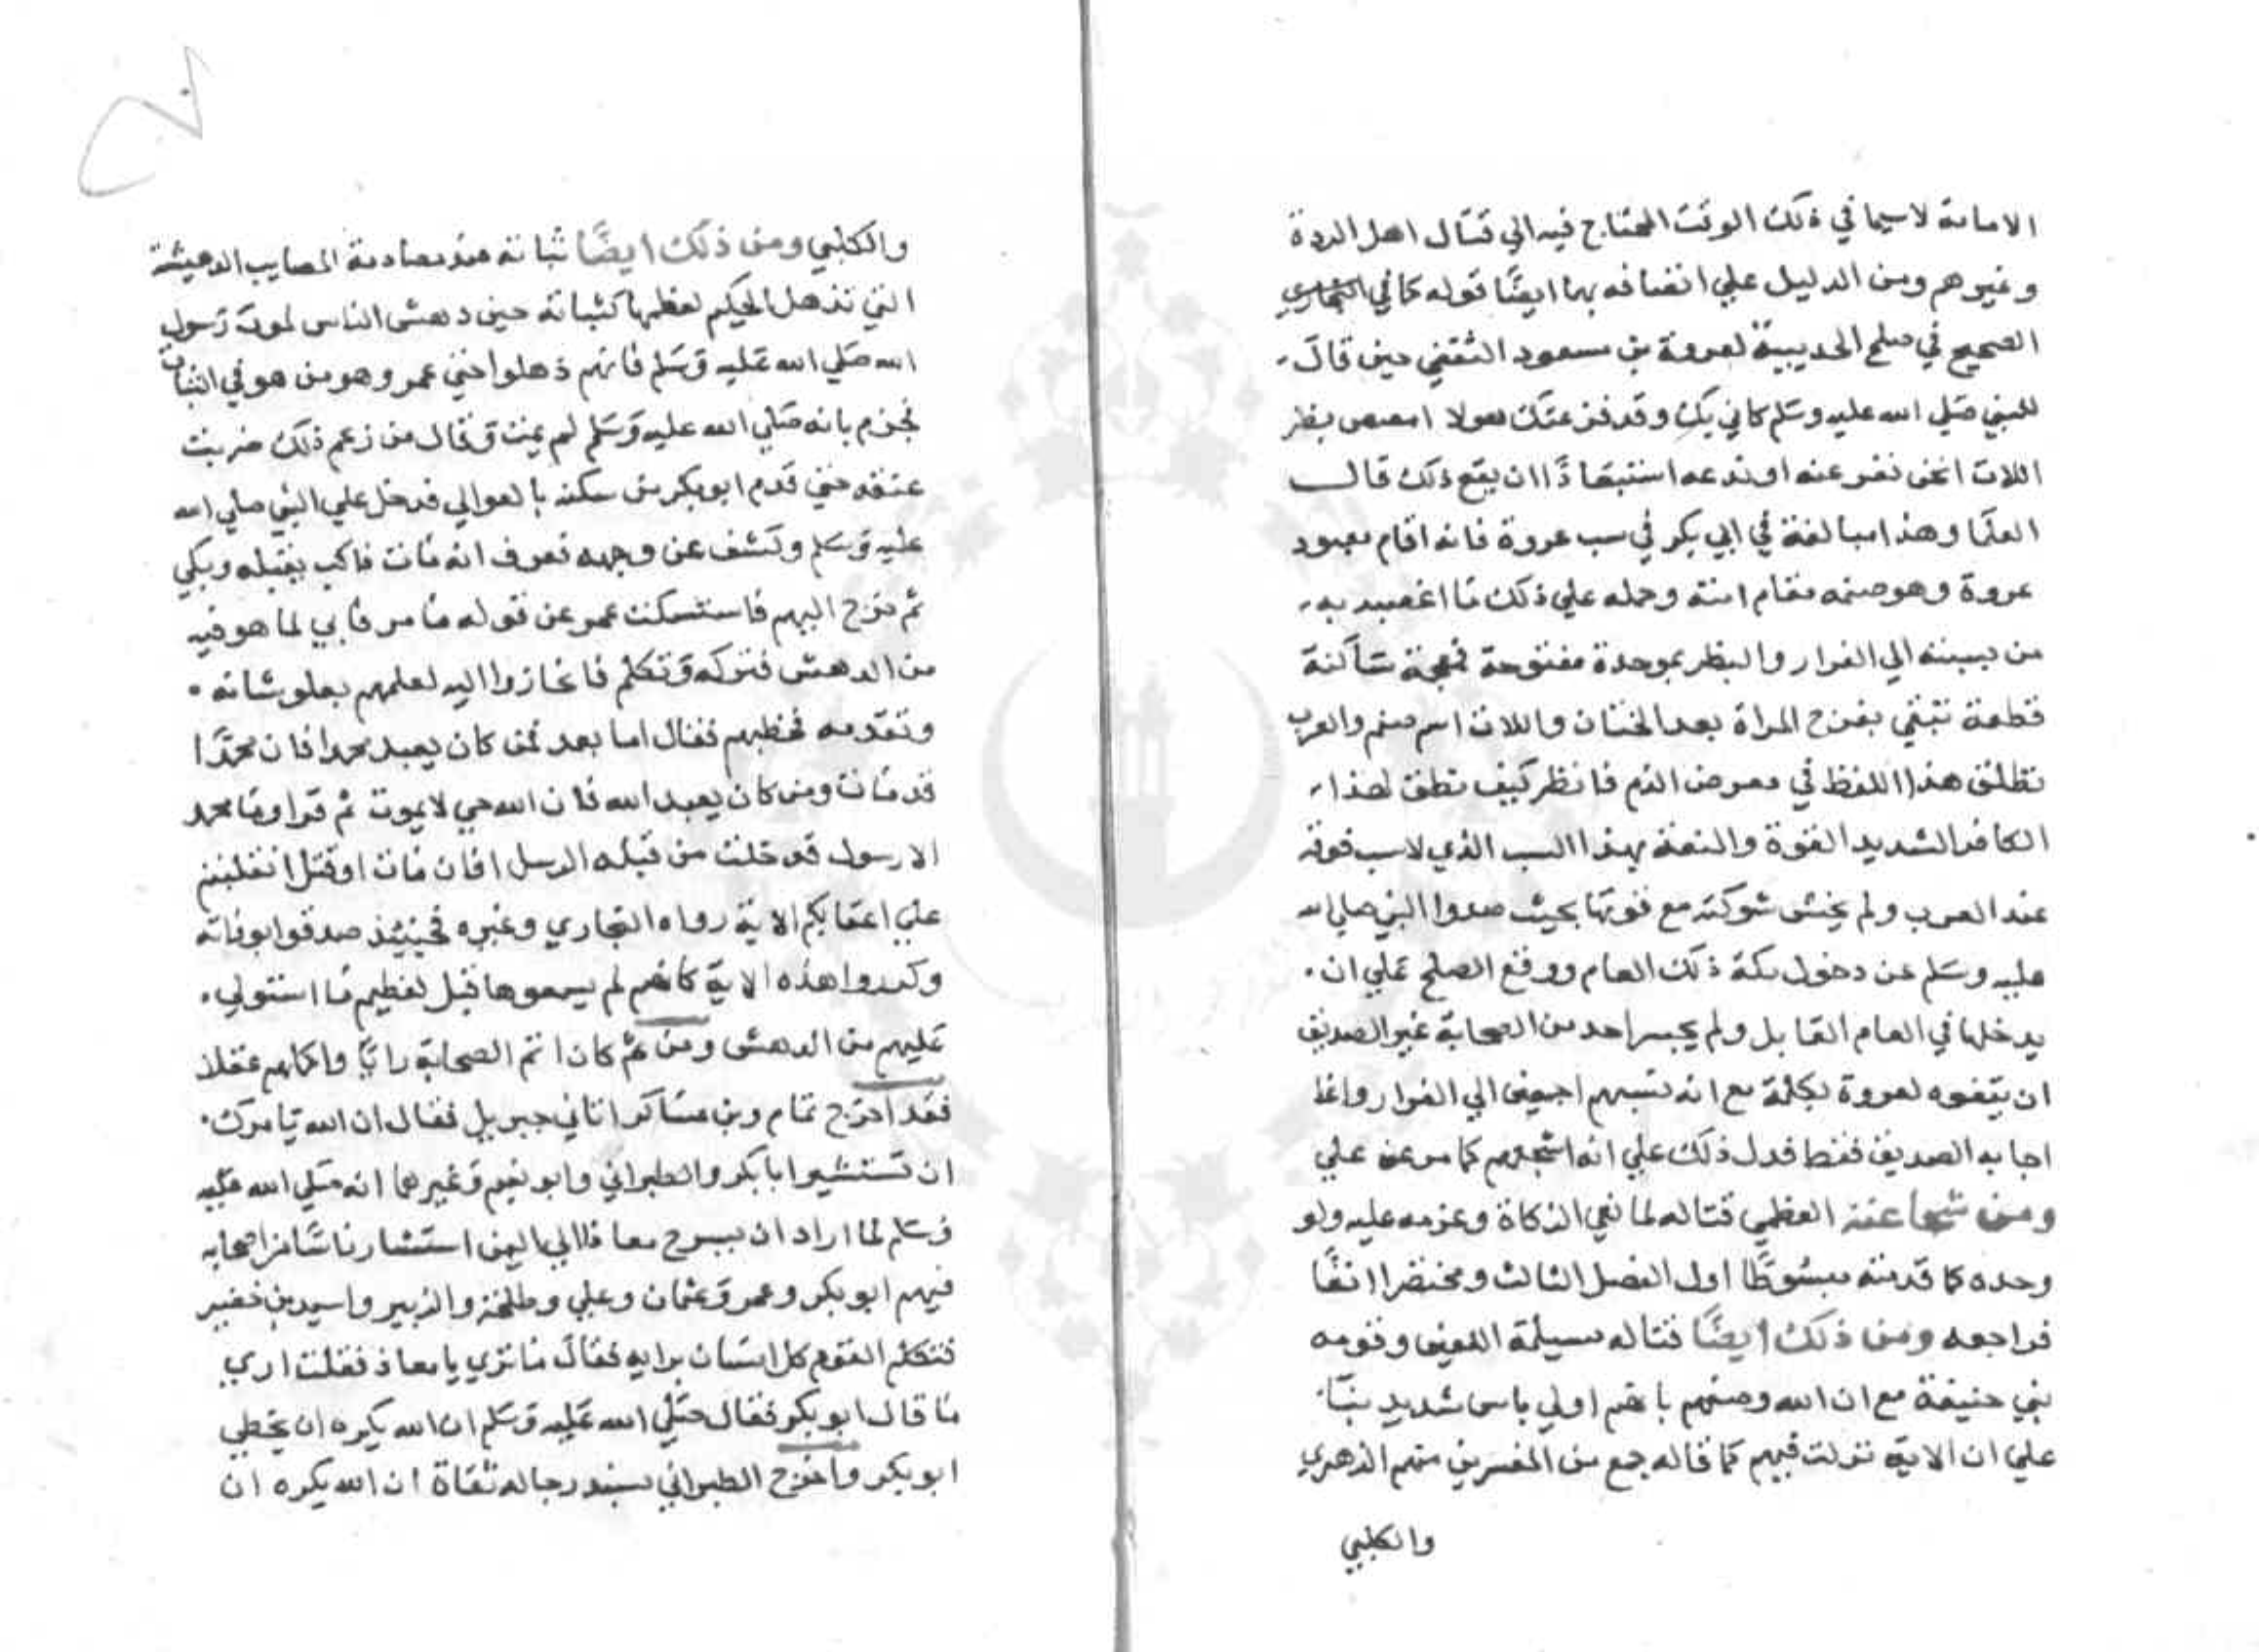 الامامة لاسيما في ذلك الوقت المحتاج فيه الي قتال اهل الردة
وغيرهم ومن الدليل علي اتصافه بها ايضًا قوله كما في
الصحيح في صلح الحديبية لعروة بن مسعود الثقفي حين قال
للنبي صلي الله عليه وسلم كاني بك وقد فر عنك هولا امصص بظر
اللات انحن نفر عنه او ندعه استبعادًا ان يقع ذلك قال
العلما وهذا مبالغة في ابي بكر في سب عروة فانه اقام معبود
عروة وهو صنمه مقام امته وحمله علي ذلك ما اغضبه به
من نسبته الي الفرار والبظر بموحدة مفتوحة فمعجمة ساكنة
قطعة تبقي بفرج المراة بعد الختان واللات اسم صنم والعرب
تطلق هذا اللفظ في معرض الذم فانظر كيف نطق لهذا
الكافر الشديد القوة والمنعة بهذا السب الذي لاسب فوقه
عند العرب ولم يخش شوكته مع قوتها بحيث صدوا النبي صلي الله
عليه وسلم عن دخول مكة ذلك العام ووقع الصلح علي ان
يدخلها في العام القابل ولم يجسر احد من الصحابة غير الصديق
ان يتفوه لعروة بكلمة مع انه نسبهم اجمعين الي الفرار وانما
اجابه الصديق فقط فدل ذلك علي انه اشجعهم كما مر عن علي
ومن شجاعته العظمي قتاله لمانعي الزكاة وعزمه عليه ولو
وحده كما قدمته مبسوطًا اول الفصل الثالث ومختصرا انفًا
فراجعه ومن ذلك ايضًا قتاله مسيلمة اللعين وقومه
بني حنيفة مع ان الله وصفهم بانهم اولي باس شديد بنا
علي ان الاية نزلت فيهم كما قاله جمع من المفسرين منهم الزهري
والكلبي
والكلبي ومن ذلك ايضًا ثباته عند مصادمة المصايب المدهشة
التي تذهل الحكيم لعظمها كثباته حين دهش الناس لموت رسول
الله صلي الله عليه وسلم فانهم ذهلوا حتي عمر وهو من هو في الثبات
فجزم بانه صلي الله عليه وسلم لم يمت وقال من زعم ذلك ضربت
عنقه حتي قدم ابو بكر من سكنه بالعوالي فدخل علي النبي صلي الله
عليه وسلم وكشف عن وجهه فعرف انه مات فاكب يقبله ويبكي
ثم خرج اليهم فاستسكت عمر عن قوله ما مر فابي لما هو فيه
من الدهش فتركه وتكلم فانحازوا اليه لعلمهم بعلو شانه
وتقدمه فخطبهم فقال اما بعد فمن كان يعبد محمدا فان محمدًا
قد مات ومن كان يعبد الله فان الله حي لا يموت ثم قرا وما محمد
الا رسول قد خلت من قبله الرسل افان مات او قتل انقلبتم
علي اعقابكم الاية رواه البخاري وغيره فحينئذ صدقوا بوفاته
وكرروا هذه الاية كانهم لم يسمعوها قبل لعظيم ما استولي
عليهم من الدهش ومن ثم كان اتم الصحابة رايًا واكملهم عقلا
فقد اخرج تمام وبن عساكر اتاني جبريل فقال ان الله يامرك
ان تستشير ابا بكر والطبراني وابو نعيم وغيرهما انه صلي الله عليه
وسلم لما اراد ان يسرح معاذا الي اليمن استشار ناسًا من اصحابه
فيهم ابو بكر وعمر وعثمان وعلي وطلحة والزبير واسيد بن خضير
فتكلم القوم كل انسان برايه فقال ما تري يا معاذ فقلت اري
ما قال ابو بكر فقال صلي الله عليه وسلم ان الله يكره ان يخطي
ابو بكر واخرج الطبراني بسند رجاله ثقاة ان الله يكره ان